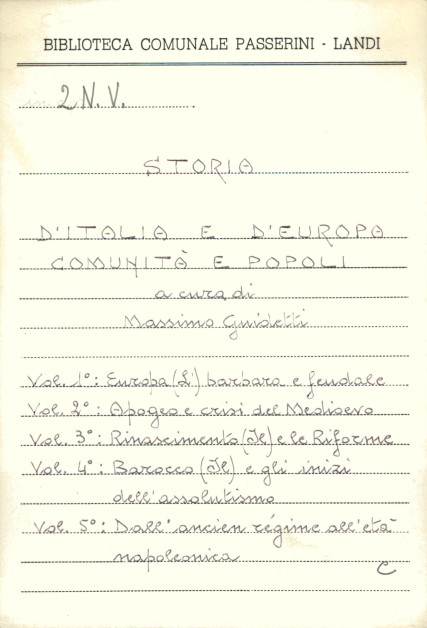 BIBLIOTECA COMUNALE PASSERINI - LANDI
in 2 N. V.
STORIA
D'ITALIA E D'EUROPA
COMUNITÀ E POPOLI
a cura di
Massimo Guidetti
Vol. 1°: Europa (L') barbara e feudale
Vol. 2°: Apogeo e crisi del Medioevo
Vol. 3°: Rinascimento (Il) e le Riforme
Vol. 4°: Barocco (Il) e gli inizi
dell'assolutismo
Vol. 5°: Dall'ancien régime all'età
napoleonica
C